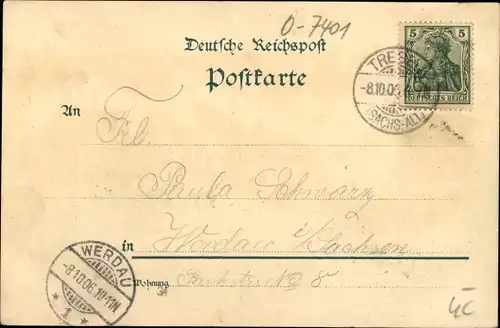 O-7401
Deutsche Reichspost
Postkarte
5 5
DEUTSCHES REICH
TREB
-8.10.06
(SACHS-ALT.)
An
Frl.
Paula Schwarz
in Werdau i/Sachsen
Wohnung
WERDAU
-8.10.06.10-11N.
* 1 *